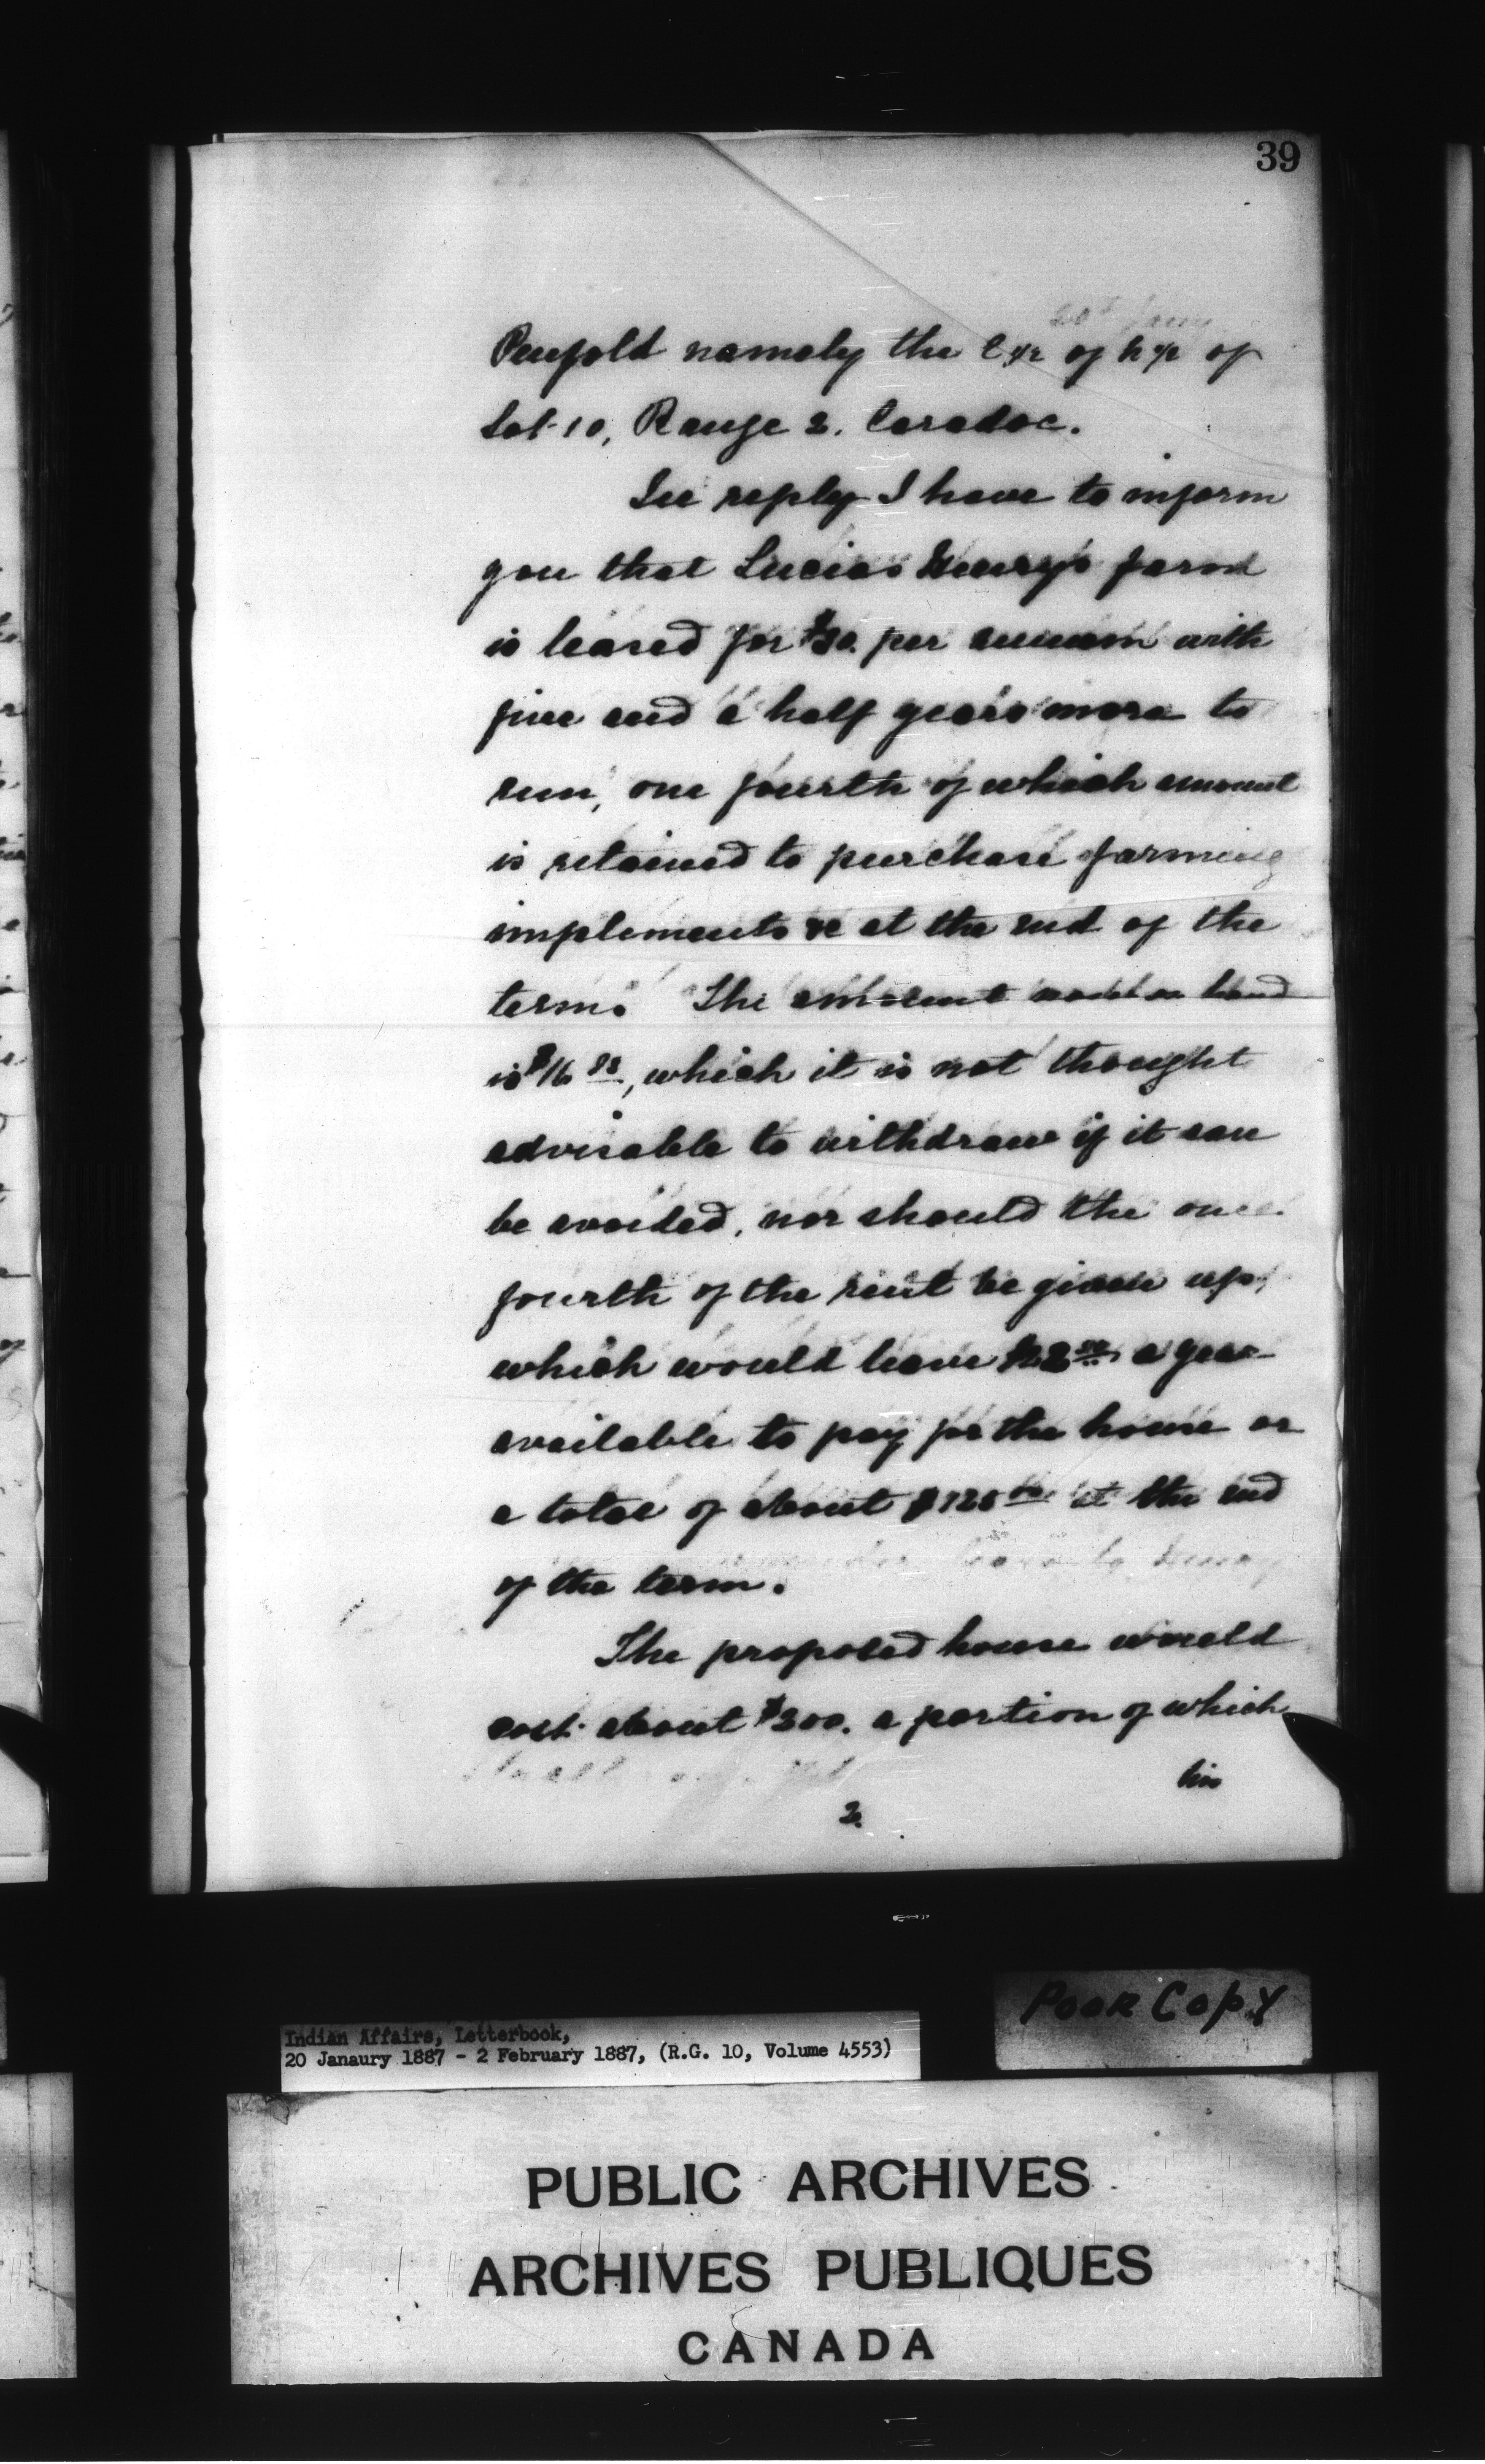 39
Penfold namely the E 1/2 of N 1/2 of
Lot 10, Range 2. Caradoc.
In reply I have to inform
you that Lucius Henry's farm
is leased for $30. per annum with
five and a half years more to
run, one fourth of which amount
is retained to purchase farming
implements &c at the end of the
term. The amount now on hand
is $16 88, which it is not thought
advisable to withdraw if it can
be avoided, nor should the one
fourth of the rent be given up,
which would leave a year
available to pay for the house or
a total of about at the end
of the term.
The proposed house would
cost about $200. a portion of which
his
2.
Poor Copy
Indian Affairs, Letterbook,
20 Janaury 1887 - 2 February 1887, (R.G. 10, Volume 4553)
PUBLIC ARCHIVES
ARCHIVES PUBLIQUES
CANADA